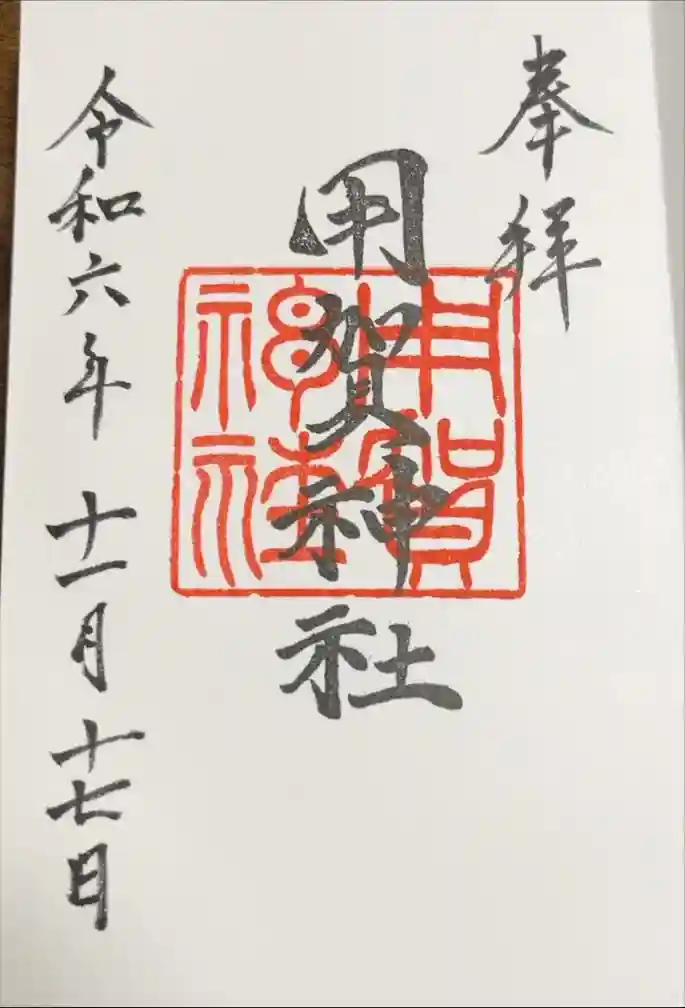 奉拝
用賀神社
用賀神社
令和六年十一月十七日